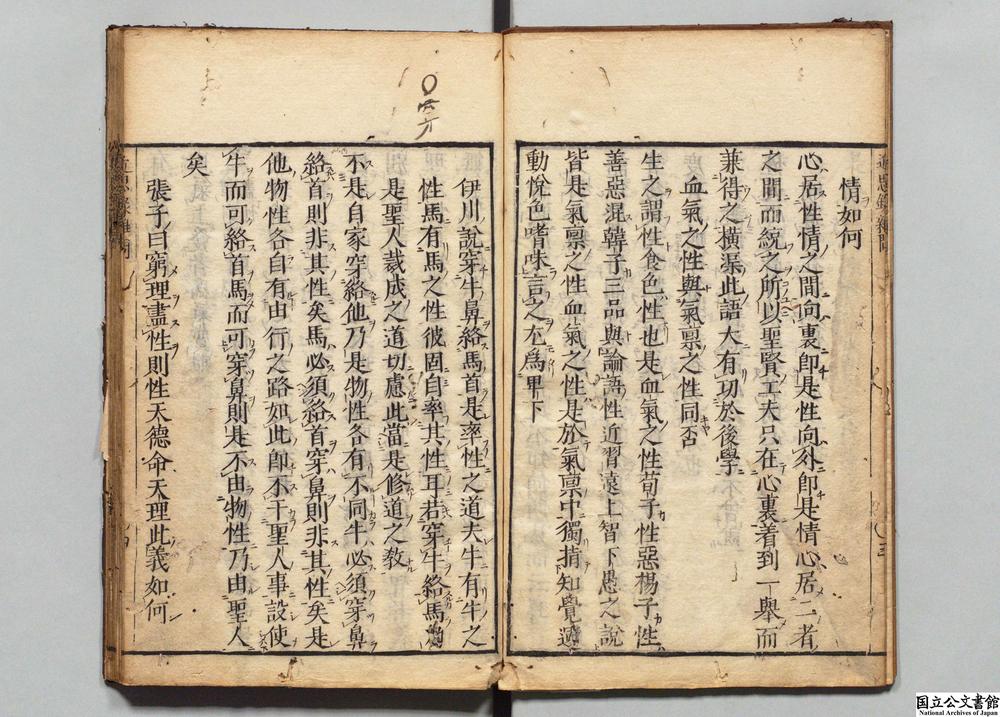 情如何
心居性情之間向裏卽是性向外卽是情心居二者
之間而統之所以聖賢工夫只在心裏着到一舉而
兼得之橫渠此語大有功於後學
血氣之性與氣禀之性同否
生之謂性食色性也是血氣之性荀子性惡楊子性
善惡混韓子三品與論語性近習遠上智下愚之說
皆是氣禀之性血氣之性是於氣禀中獨指知覺運
動悅色嗜味言之尤爲卑下
伊川說穿牛鼻絡馬首是率性之道夫牛有牛之
性馬有馬之性彼固自率其性耳若穿牛絡馬
是聖人裁成之道切慮此當是修道之敎
不是自家穿絡他乃是物性各有不同牛必須穿鼻
絡首則非其性矣馬必須絡首穿鼻則非其性矣是
他物性各自有由行之路如此卽不干聖人事設使
牛而可絡首馬而可穿鼻則是不由物性乃由聖人
矣
張子曰窮理盡性則性天德命天理此義如何
近思錄雜問
国立公文書館
National Archives of Japan